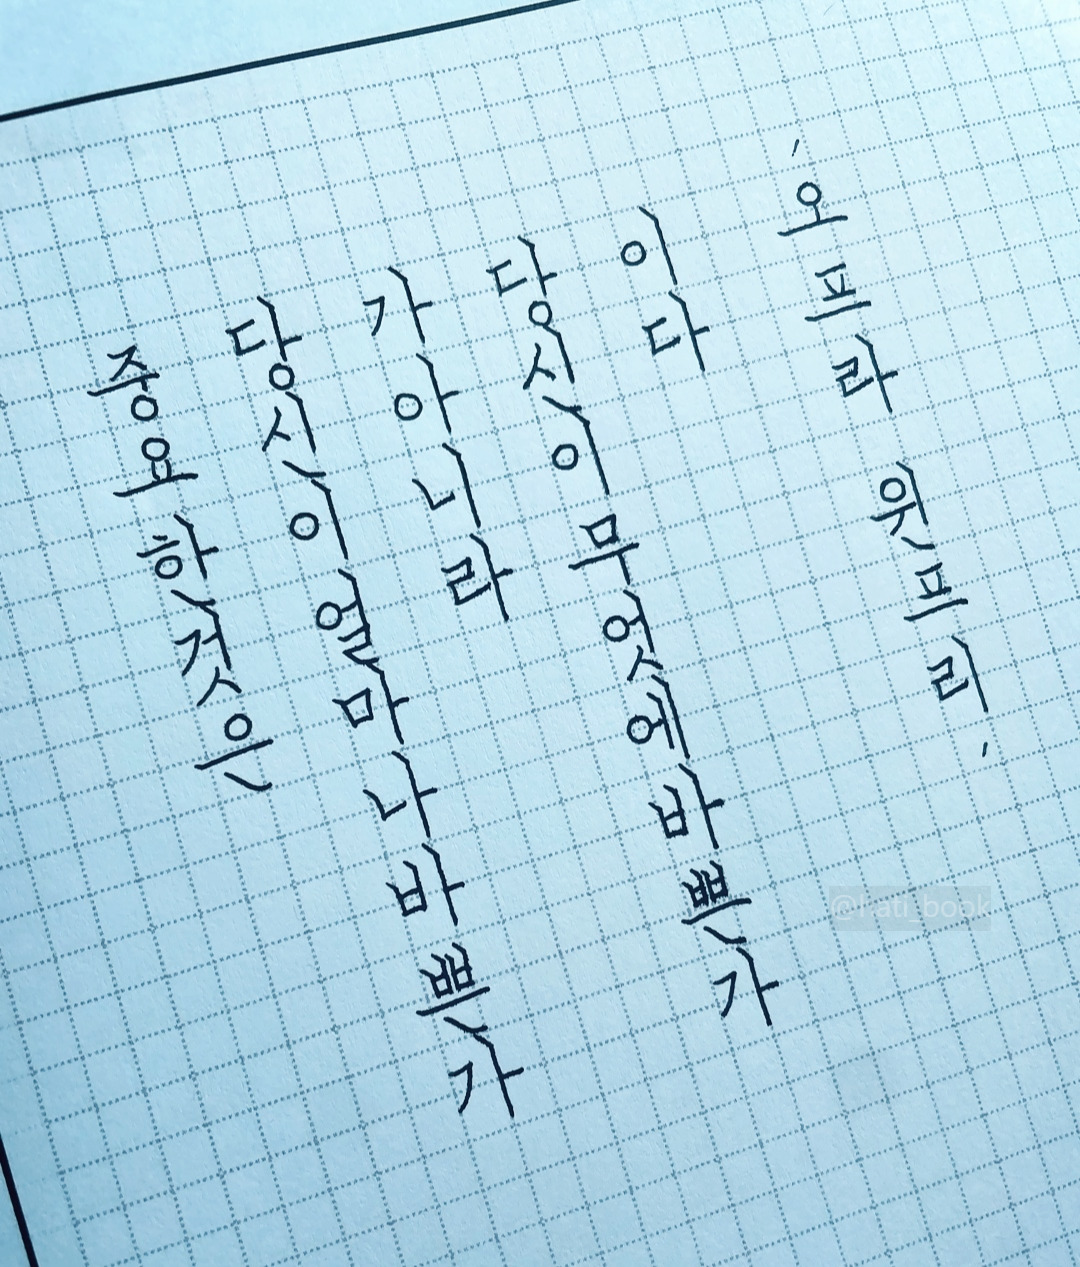 중요한 것은
당신이 얼마나 바쁜가
가 아니라
당신이 무엇에 바쁜가
이다
'오프라 윈프리'